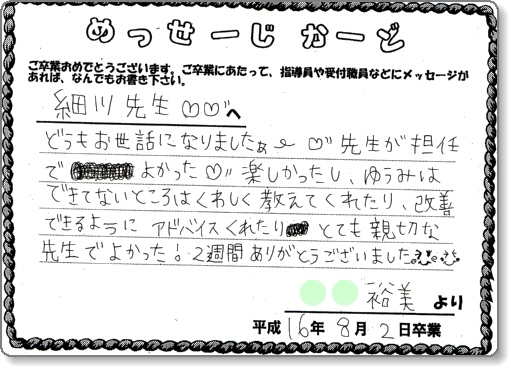 めっせーじかーど
ご卒業おめでとうございます。ご卒業にあたって、指導員や受付職員などにメッセージが
あれば、なんでもお書き下さい。
細川先生♡♡へ
どうもお世話になりましたぁ ♡先生が担任
で よかった♡楽しかったし、ゆうみは
できてないところはくわしく教えてくれたり、改善
できるように アドバイスくれたり とても親切な
先生でよかった！2週間ありがとうございました。
裕美 より
平成16年8月2日卒業